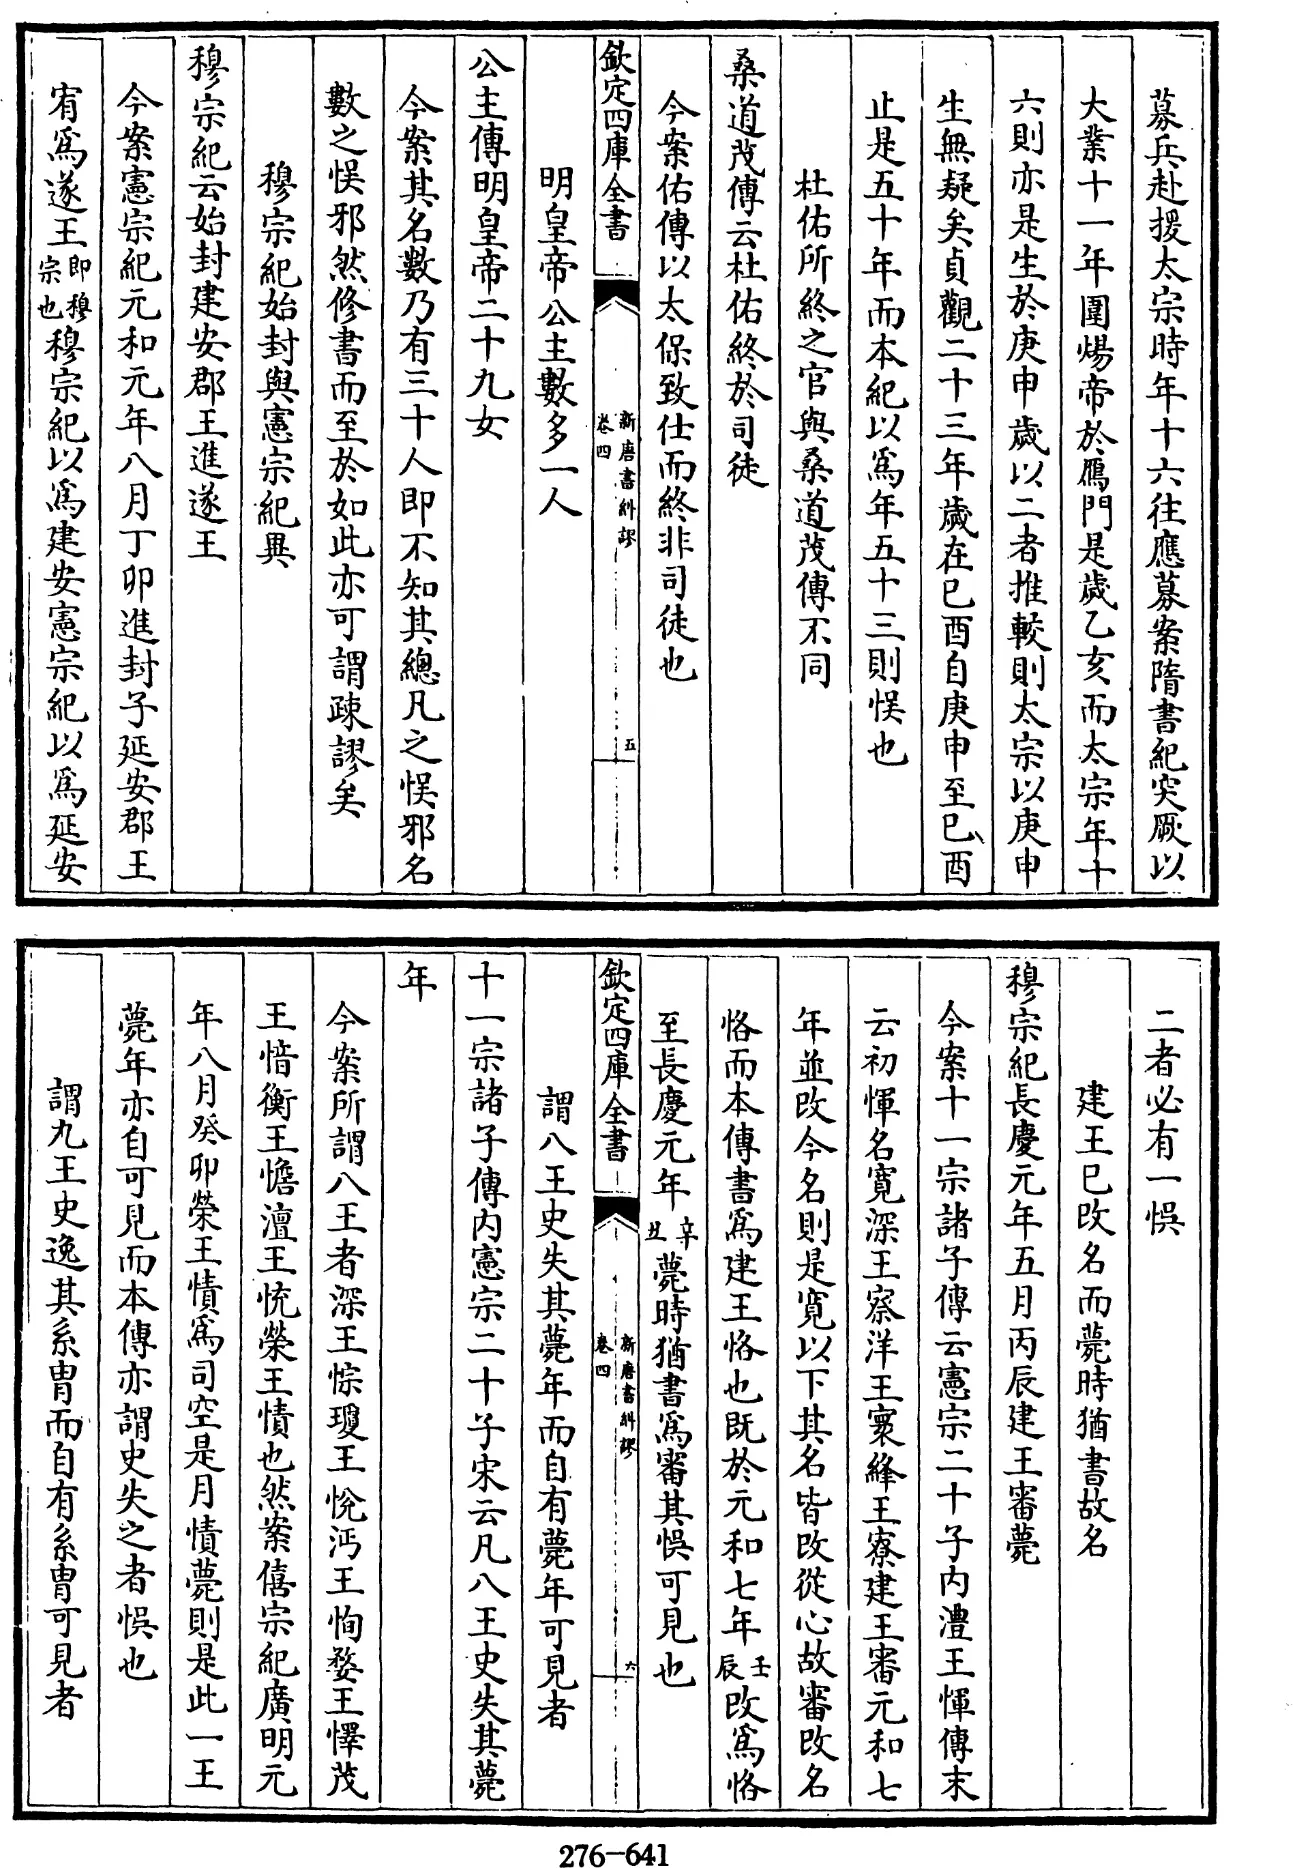 募兵赴援太宗時年十六往應募案隋書紀突厥以
大業十一年圍煬帝於鴈門是歲乙亥而太宗年十
六則亦是生於庚申歲以二者推較則太宗以庚申
生無疑矣貞觀二十三年歲在已酉自庚申至已酉
止是五十年而本紀以爲年五十三則悮也
杜佑所終之官與桑道茂傳不同
桑道茂傳云杜佑終於司徒
今案佑傳以太保致仕而終非司徒也
欽定四庫全書
新唐書糾謬
卷四
五
明皇帝公主數多一人
公主傳明皇帝二十九女
今案其名數乃有三十人即不知其總凡之悮邪名
數之悮邪然修書而至於如此亦可謂疎謬矣
穆宗紀始封與憲宗紀異
穆宗紀云始封建安郡王進遂王
今案憲宗紀元和元年八月丁卯進封子延安郡王
宥爲遂王即穆宗也穆宗紀以爲建安憲宗紀以爲延安
二者必有一悞
建王已改名而薨時猶書故名
穆宗紀長慶元年五月丙辰建王審薨
今案十一宗諸子傳云憲宗二十子内澧王惲傳末
云初惲名寬深王察洋王寰絳王寮建王審元和七
年並改今名則是寬以下其名皆改從心故審改名
恪而本傳書爲建王恪也既於元和七年壬辰改爲恪
至長慶元年辛丑薨時猶書爲審其悞可見也
欽定四庫全書
新唐書糾謬
卷四
六
謂八王史失其薨年而自有薨年可見者
十一宗諸子傳内憲宗二十子宋云凡八王史失其薨
年
今案所謂八王者深王悰瓊王悅沔王恂婺王懌茂
王愔衡王憺澶王㤝榮王憒也然案僖宗紀廣明元
年八月癸卯榮王憒爲司空是月憒薨則是此一王
薨年亦自可見而本傳亦謂史失之者悞也
謂九王史逸其系胄而自有系胄可見者
276-641